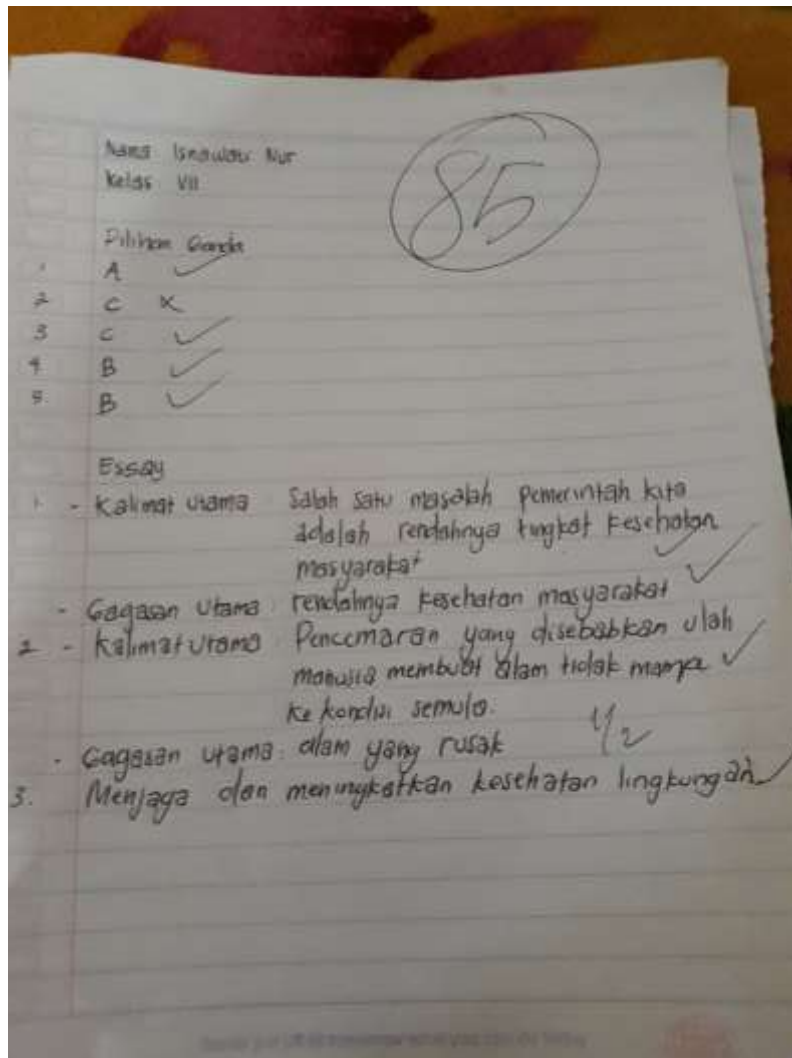 Nama Isnawati Nur
Kelas VII
85
Pilihan Ganda
1 A
2 C X
3 C
4 B
5. B
Essay
1. - Kalimat Utama : Salah satu masalah pemerintah kita
adalah rendahnya tingkat kesehatan
masyarakat
- Gagasan Utama : rendahnya kesehatan masyarakat
2 - Kalimat Utama : Pencemaran yang disebabkan ulah
manusia membuat alam tidak
ke kondisi semula.
1/2
- Gagasan utama : alam yang rusak
3. Menjaga dan meningkatkan kesehatan lingkungan